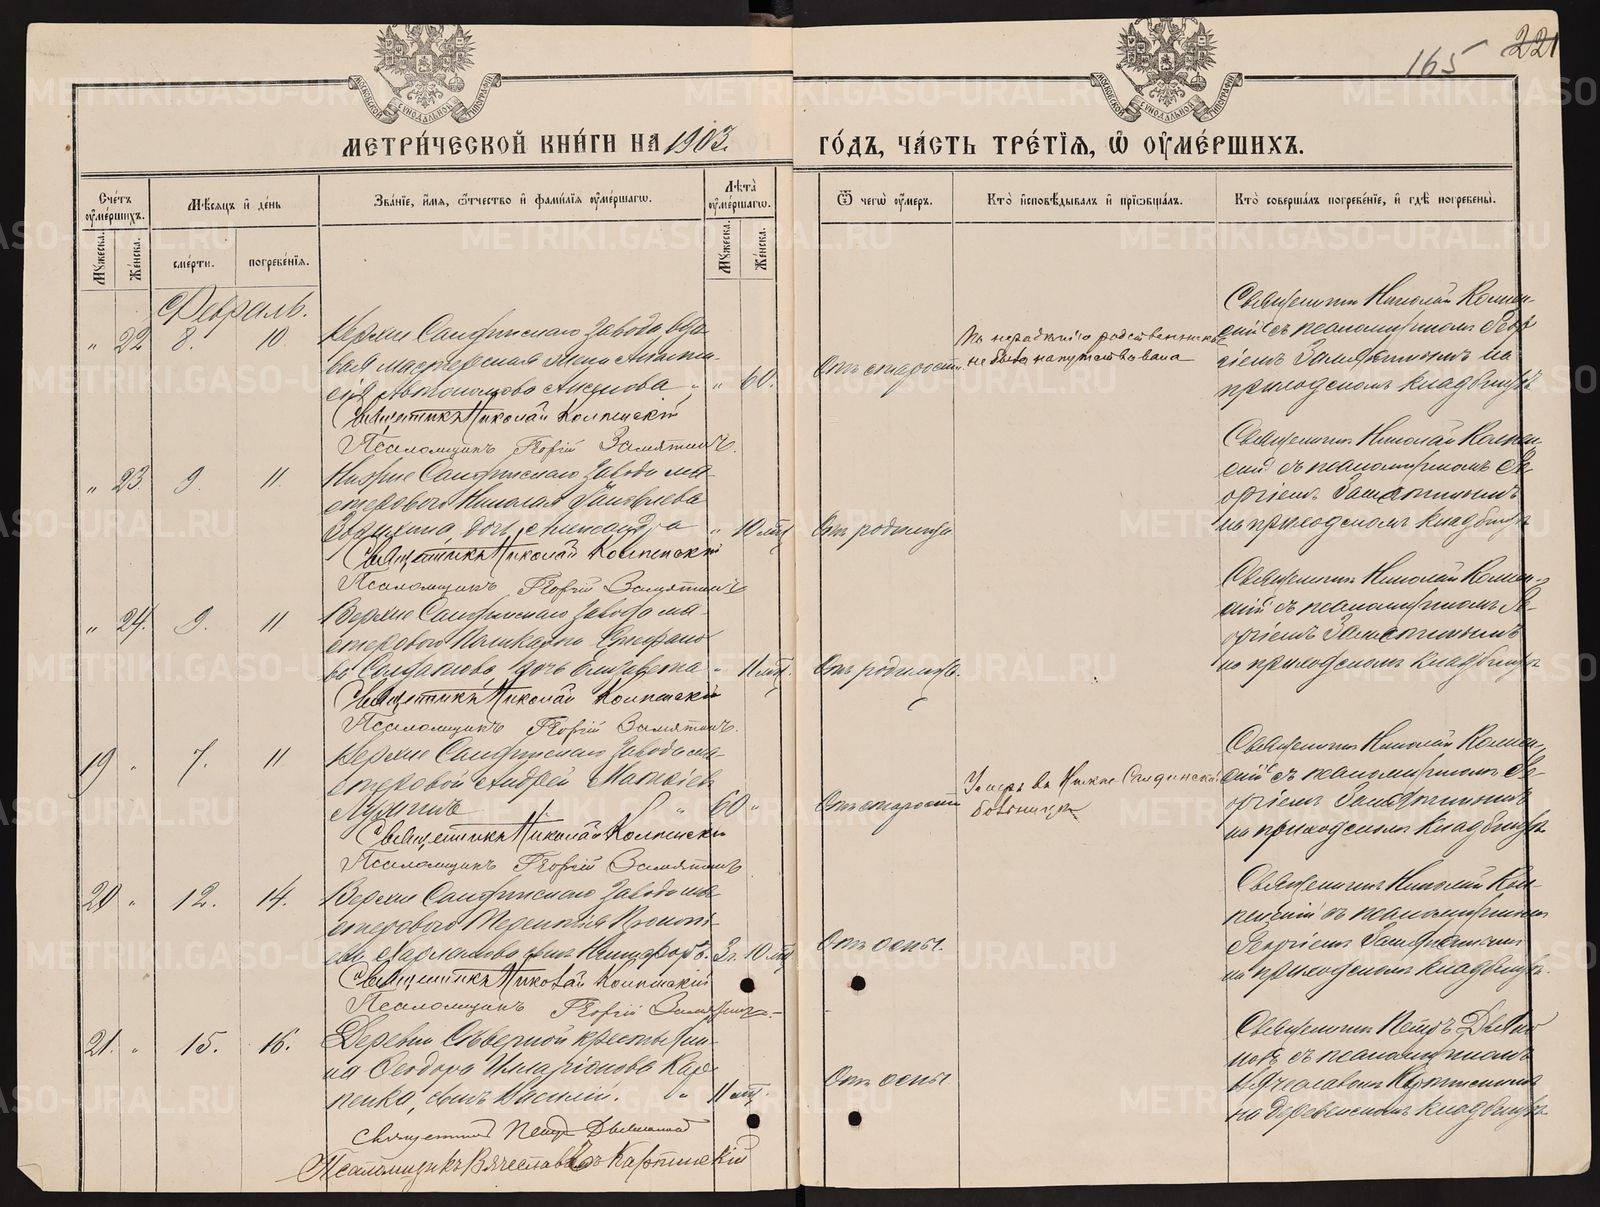 165 221
МЕТРИ́ЧЕСКОЙ КНИ́ГИ НА 1903. ГО́ДЪ, ЧА́СТЬ ТРЕ́ТІѦ, Ѽ ОУ҆МЕ́РШИХЪ.
Сче́тъ оу҆ме́ршихъ.
Мѣ́сѧцъ и҆ де́нь
Зва́ніе, и҆́мѧ, ѻ҆́тчество и҆ фами́лїѧ оу҆ме́ршагѡ.
Лѣ́та оу҆ме́ршагѡ.
Ѿ чегѡ̀ оу҆́меръ.
Кто̀ и҆сповѣ́дывалъ и҆ прїѡбща́лъ.
Кто̀ соверша́лъ погребе́нїе, и҆ гдѣ̀ погребены̀.
Мꙋ́жеска.
Же́нска.
сме́рти.
погребе́нїѧ.
Мꙋ́жеска.
Же́нска.
Февраль.
" 22 8. 10. Верхне Салдинскаго завода вдо-
вая мастерская жена Анаста-
сія Автономова " " 60.
Отъ старости
не была напутствована
Священникъ Николай Колпен-
скій съ псаломщикомъ Геор
гіемъ Замятинымъ на
приходскомъ кладбищѣ
Священникъ Николай Колпенскій
Псаломщикъ Георгій Замятинъ.
" 23. 9. 11. Нижне Салдинскаго завода ма-
стероваго Николая
дочь Александра " 10 мц
Отъ родимца
Священникъ Николай Колпен
скій съ псаломщикомъ Ге-
оргіемъ Замятинымъ
на приходскомъ кладбищѣ
Священникъ Николай Колпенскій
Псаломщикъ Георгій Замятинъ
" 24. 9. 11 Верхне Салдинскаго завода ма-
стероваго Стефано
ва дочь Елизавета " 11 мц.
Отъ родимца.
Священникъ Николай Колпен-
скій съ псаломщикомъ Ге-
оргіемъ Замятинымъ
на приходскомъ кладбищѣ
Священникъ Николай Колпенскій
Псаломщикъ Георгій Замятинъ.
19 " 7. 11 Верхне Салдинскаго завода ма-
стеровой Андрей
" 60 "
Отъ старости
Умеръ въ Нижне Салдинской
больницѣ
Священникъ Николай Колпен-
скій съ псаломщикомъ Ге-
оргіемъ Замятинымъ
на приходскомъ кладбищѣ
Священникъ Николай Колпенскій
Псаломщикъ Георгій Замятинъ
20 " 12. 14. Верхне Салдинскаго завода ма-
стероваго Терентія
сынъ Никифоръ. 3 г. 10 мц
Отъ оспы.
Священникъ Николай Кол-
пенскій съ псаломщикомъ
Георгіемъ Замятинымъ
на приходскомъ кладбищѣ.
Священникъ Николай Колпенскій
Псаломщикъ Георгій Замятинъ.
21. " 15. 16. Деревни Сѣверной крестьяни-
на Ѳеодора Илларіонова Кар-
пенка, сынъ Василій. " 11 мц.
Отъ оспы.
Священникъ Петръ
съ псаломщикомъ
Вячеславомъ Карпинскимъ
на деревенскомъ кладбищѣ
Священникъ Петръ
Псаломщикъ Вячеславъ Карпинскій